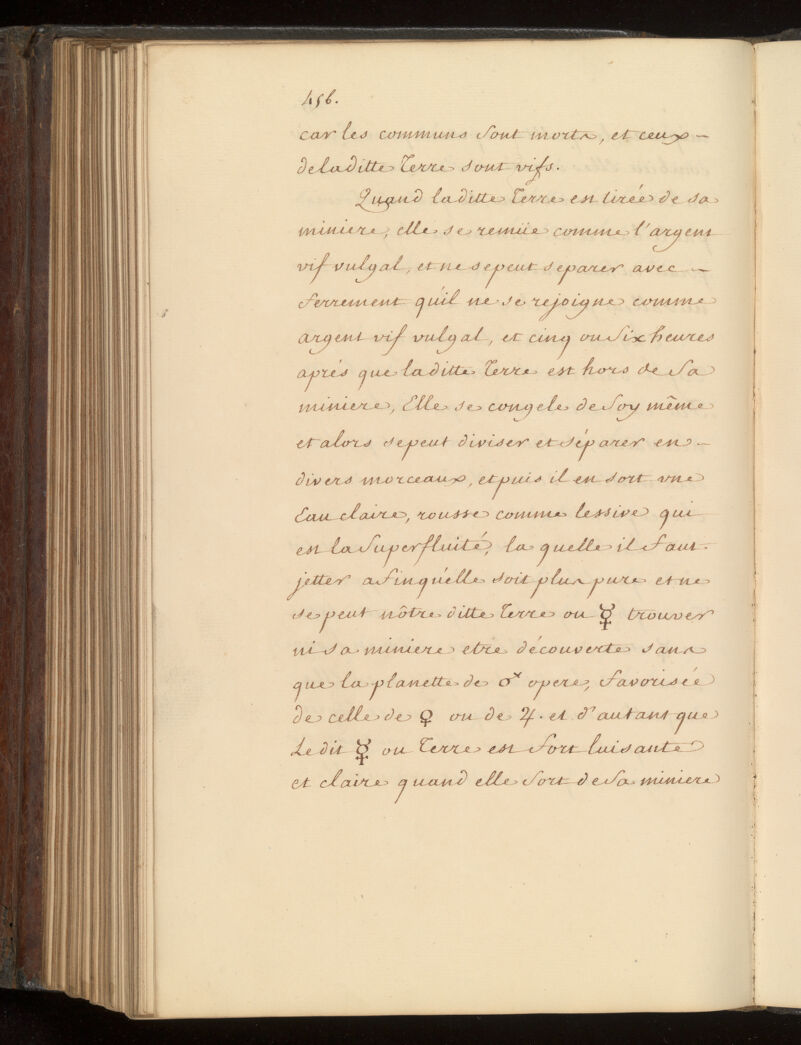 456.
car les communs sont morts, et ceux –
de la ditte Terre sont vifs.
Quand la ditte Terre est tirée de sa
miniere, elle se remüe comme l'argent
vif vulgal, et ne se peut separer avec –
ferrement qu'il ne se rejoigne comme
argent vif vulgal, et cinq ou six heures
aprés que la ditte Terre est hors de sa
miniere, Elle se congele de soy même
et alors se peut diviser et séparer en –
divers morceaux, et puis il en sort vne
Eau claire, rousse comme lessive qui
est la superfluité, la quelle il faut.
jetter afin qu'elle soit plus pure et ne
se peut nôtre ditte Terre ou ☿ trouver
ni sa miniere etre découverte sans
que la planette de ♂ opere, favorisée
de celle de ♀ ou de ♃. et d'autant que
Le dit ☿ ou Terre est fort luisante
et claire quand elle sort de sa miniere